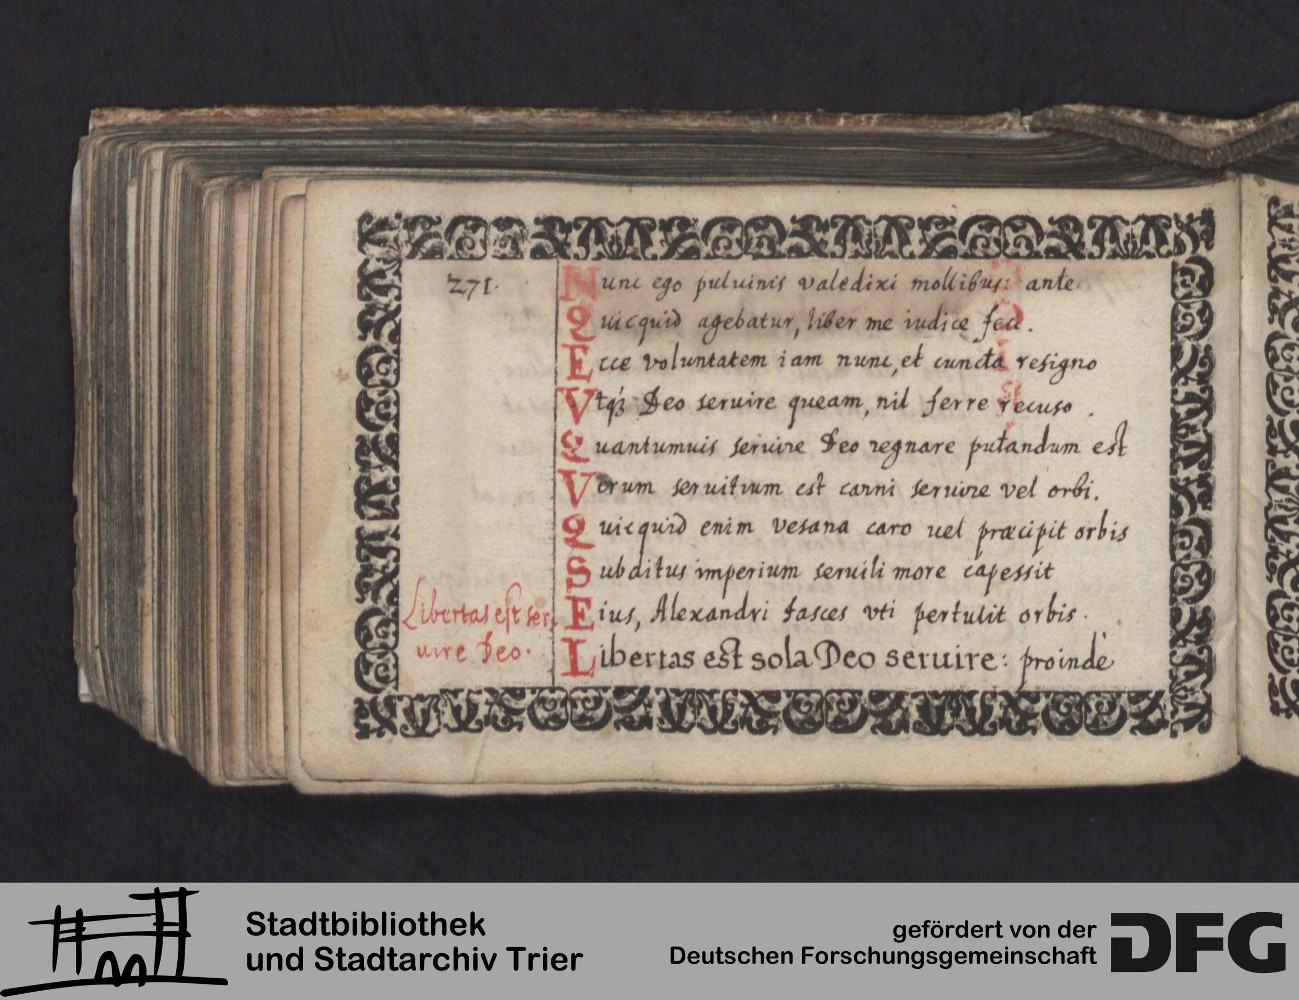 271.
Nunc ego puluinis valedixi mollibus: ante
Quicquid agebatur, liber me iudice feci.
Ecce voluntatem iam nunc, et cuncta resigno
Vtq́ꝫ Deo seruire queam, nil ferre recuso.
Quantumuis seruire Deo regnare putandum est
Verum seruitium est carni seruire vel orbi.
Quicquid enim vesana caro uel præcipit orbis
Subditus imperium seruili more capessit
Eius, Alexandri fasces vti pertulit orbis.
Libertas est ser,
uire Deo.
Libertas est sola Deo seruire: proinde
Stadtbibliothek
und Stadtarchiv Trier
gefördert von der
Deutschen Forschungsgemeinschaft
DFG